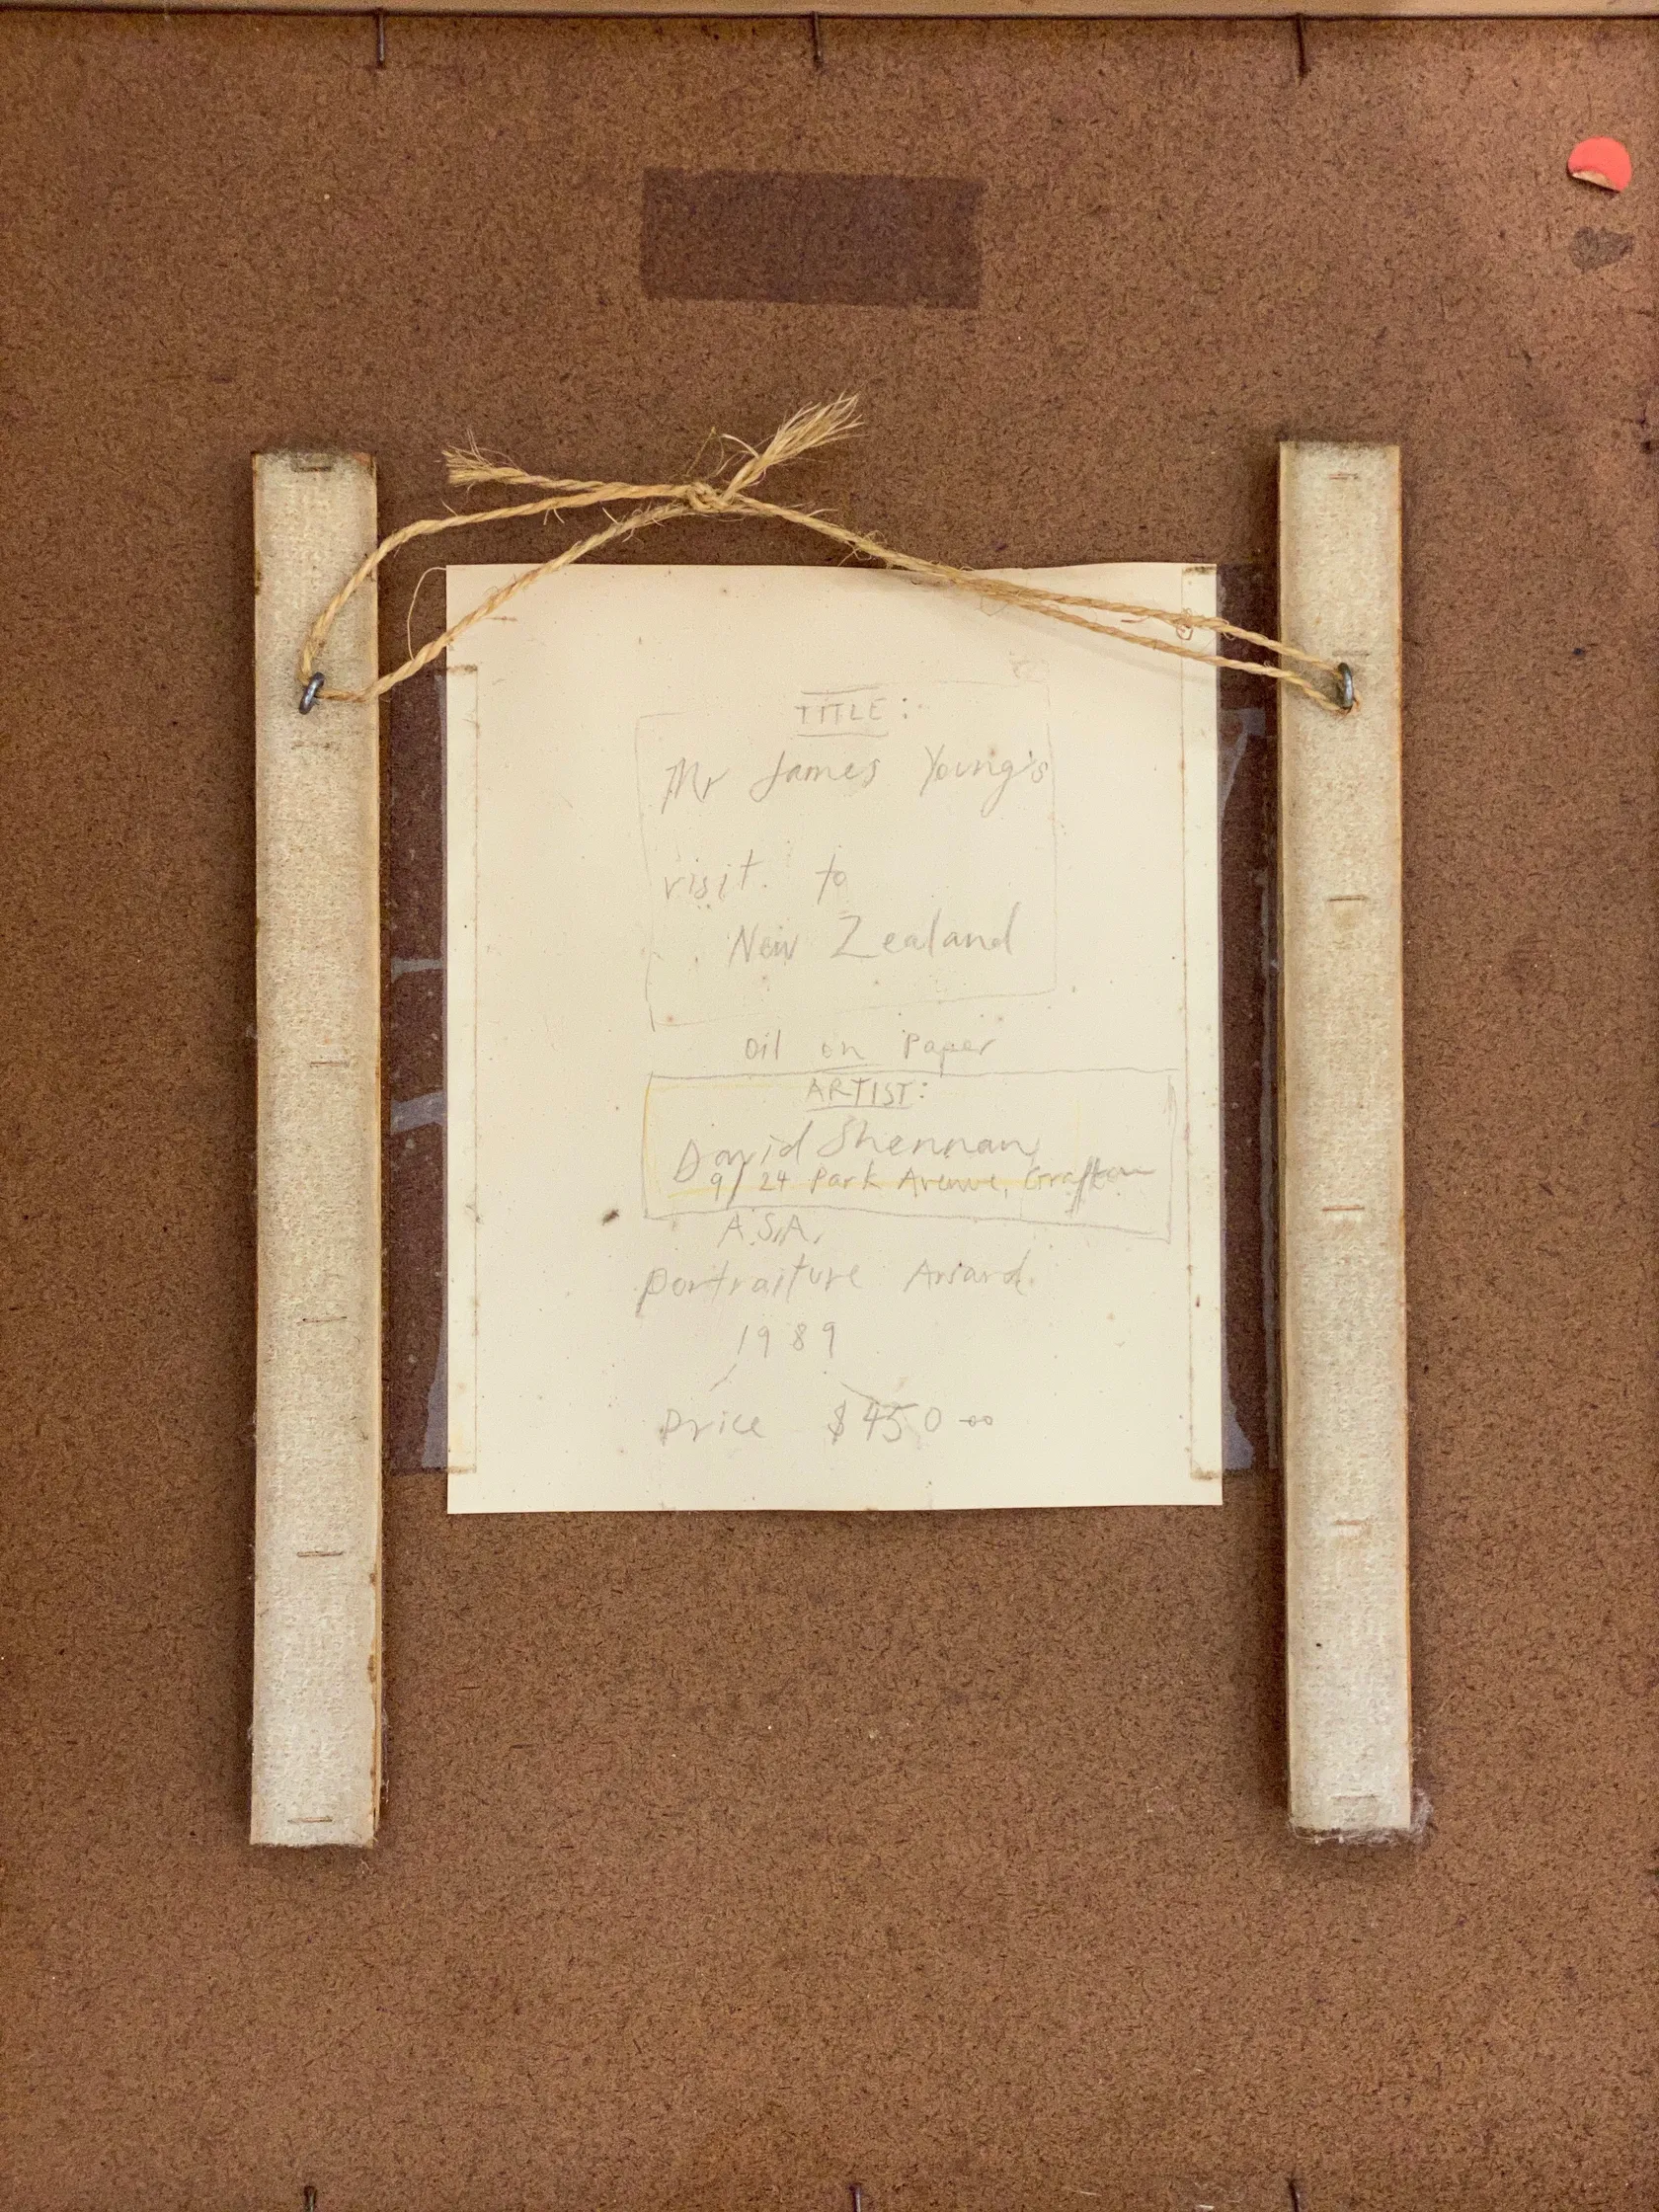 TITLE:
Mr James Young's
visit. to
New Zealand
Oil on Paper
ARTIST:
David Shennan
9/24 Park Avenue, Grafton
A.S.A.
Portraiture Award.
1989
Price $450-00